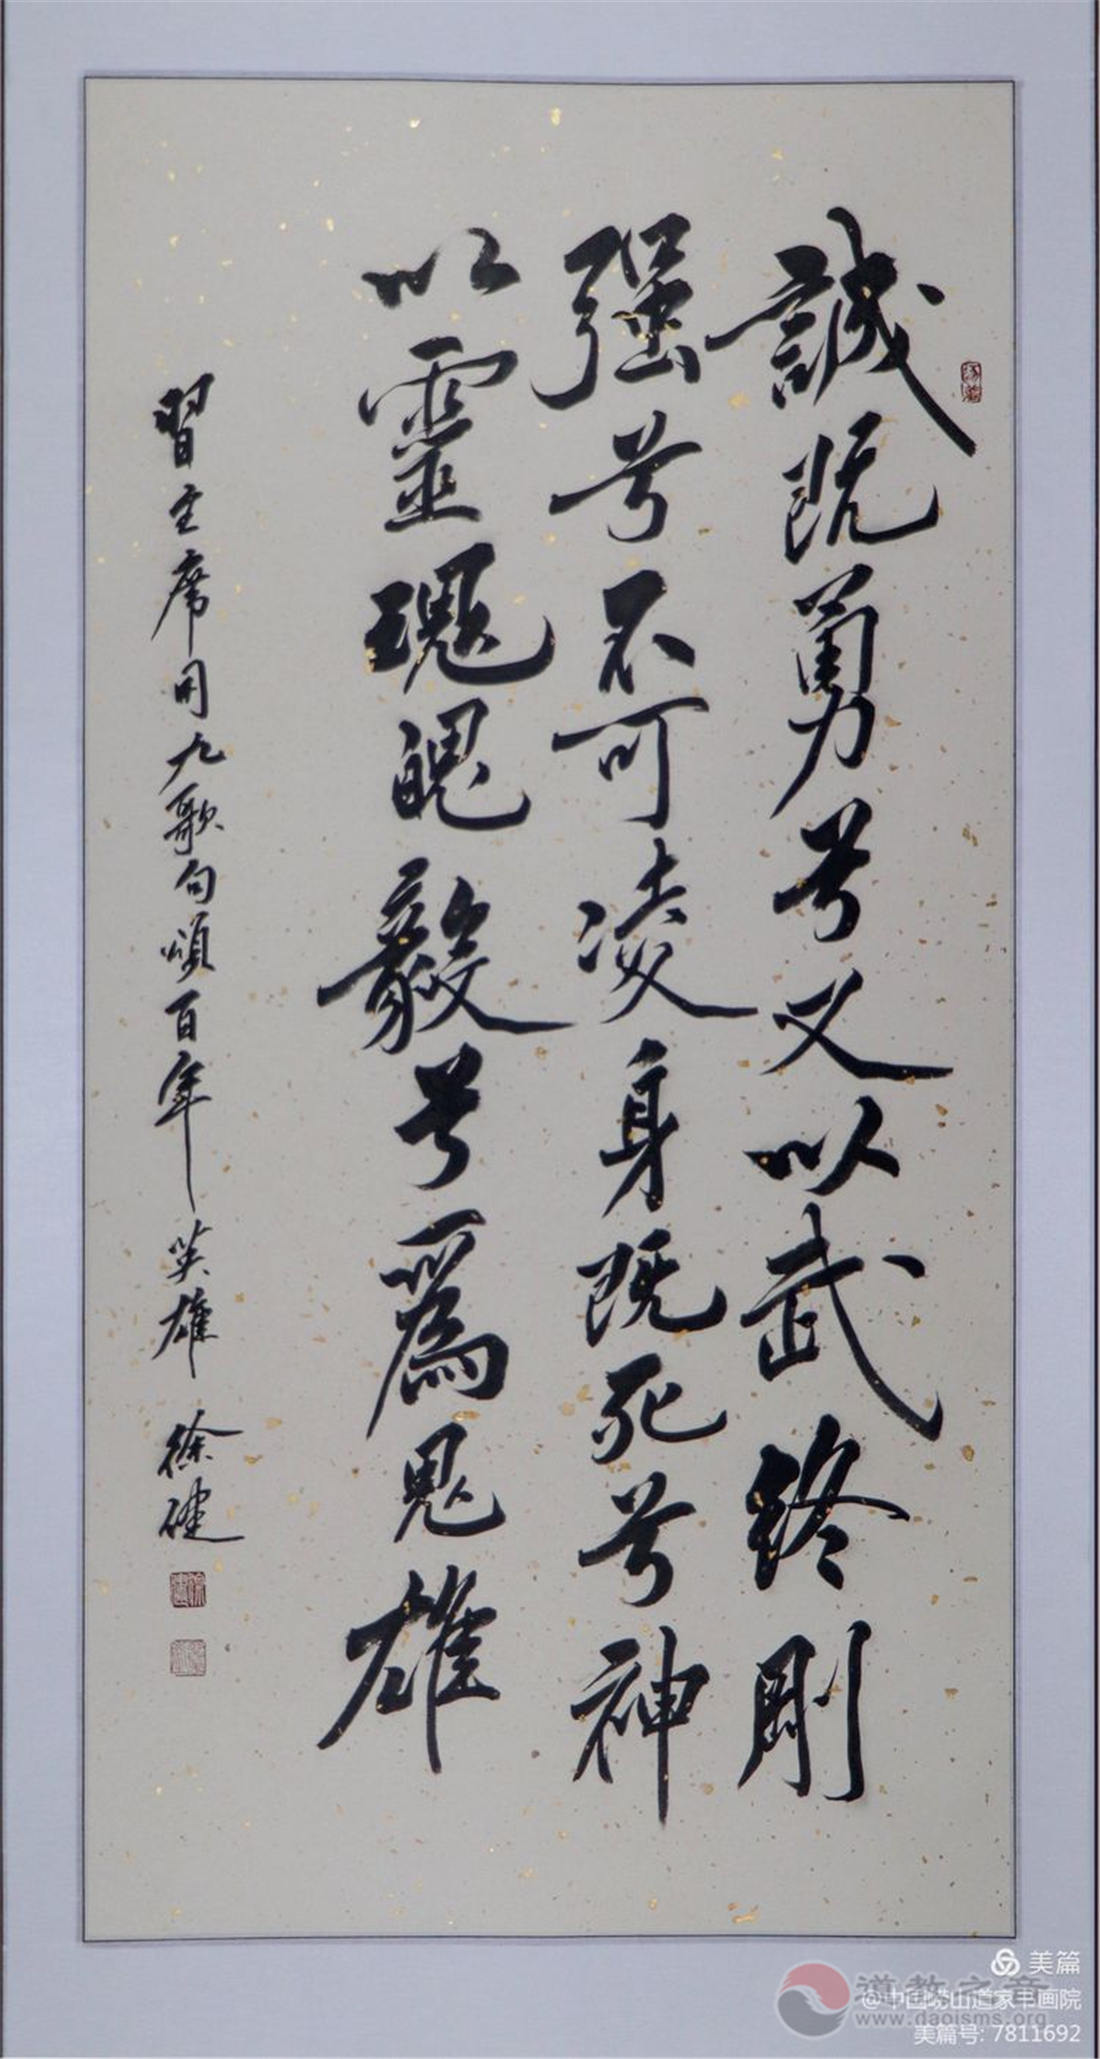 誠既勇兮又以武終剛
强兮不可凌身既死兮神
以靈魂魄毅兮爲鬼雄
習主席用九歌句頌百年英雄 徐健
美篇
道教之音
@中国崂山道家书画院
www.daoisms.org
美篇号: 7811692